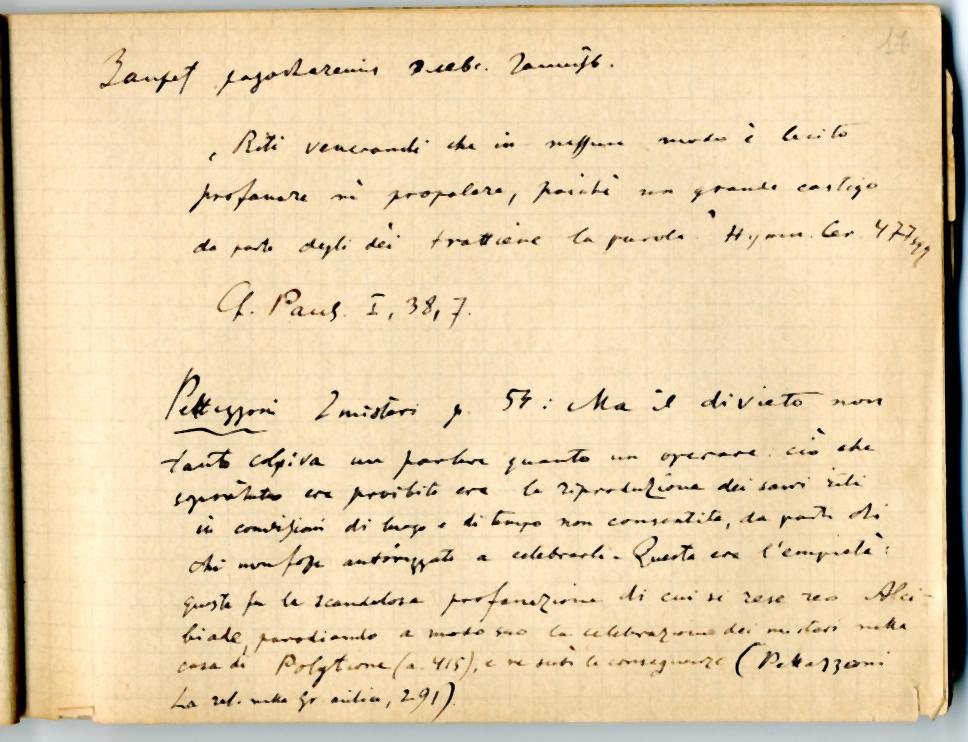 17
Запрет разглашения элевс. таинств.
„Riti venerandi che in nessun modo è lecito
profanare nè propalare, poichè un grande castigo
da parte degli dèi trattiene la parola." Hymn. Cer. 477 sqq
Cf. Paus. I, 38, 7.
Pettazzoni I misteri p. 54: Ma il divieto non
tanto colpiva un parlare quanto un operare: ciò che
sopratutto era proibito era la riproduzione dei sacri riti
in condizioni di luogo e di tempo non consentite, da parte di
chi non fosse autorizzato a celebrarli. Questa era l'empietà:
questa fu la scandalosa profanazione di cui si rese reo Alci-
biade, parodiando a modo suo la celebrazione dei misteri nella
casa di Polytione (a. 415), e ne subì le conseguenze (Pettazzoni
La rel. nella Gr. antica, 291).